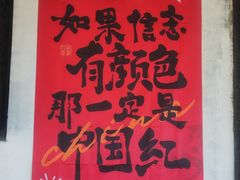 如果信志
有颜色
那一定是
中国红
china